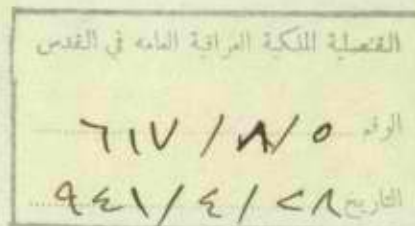 القنصلية الملكية العراقية العامه في القدس
الرقم ٥ / ٨ / ٦١٧
التاريخ ٢٨ / ٤ / ٩٤١